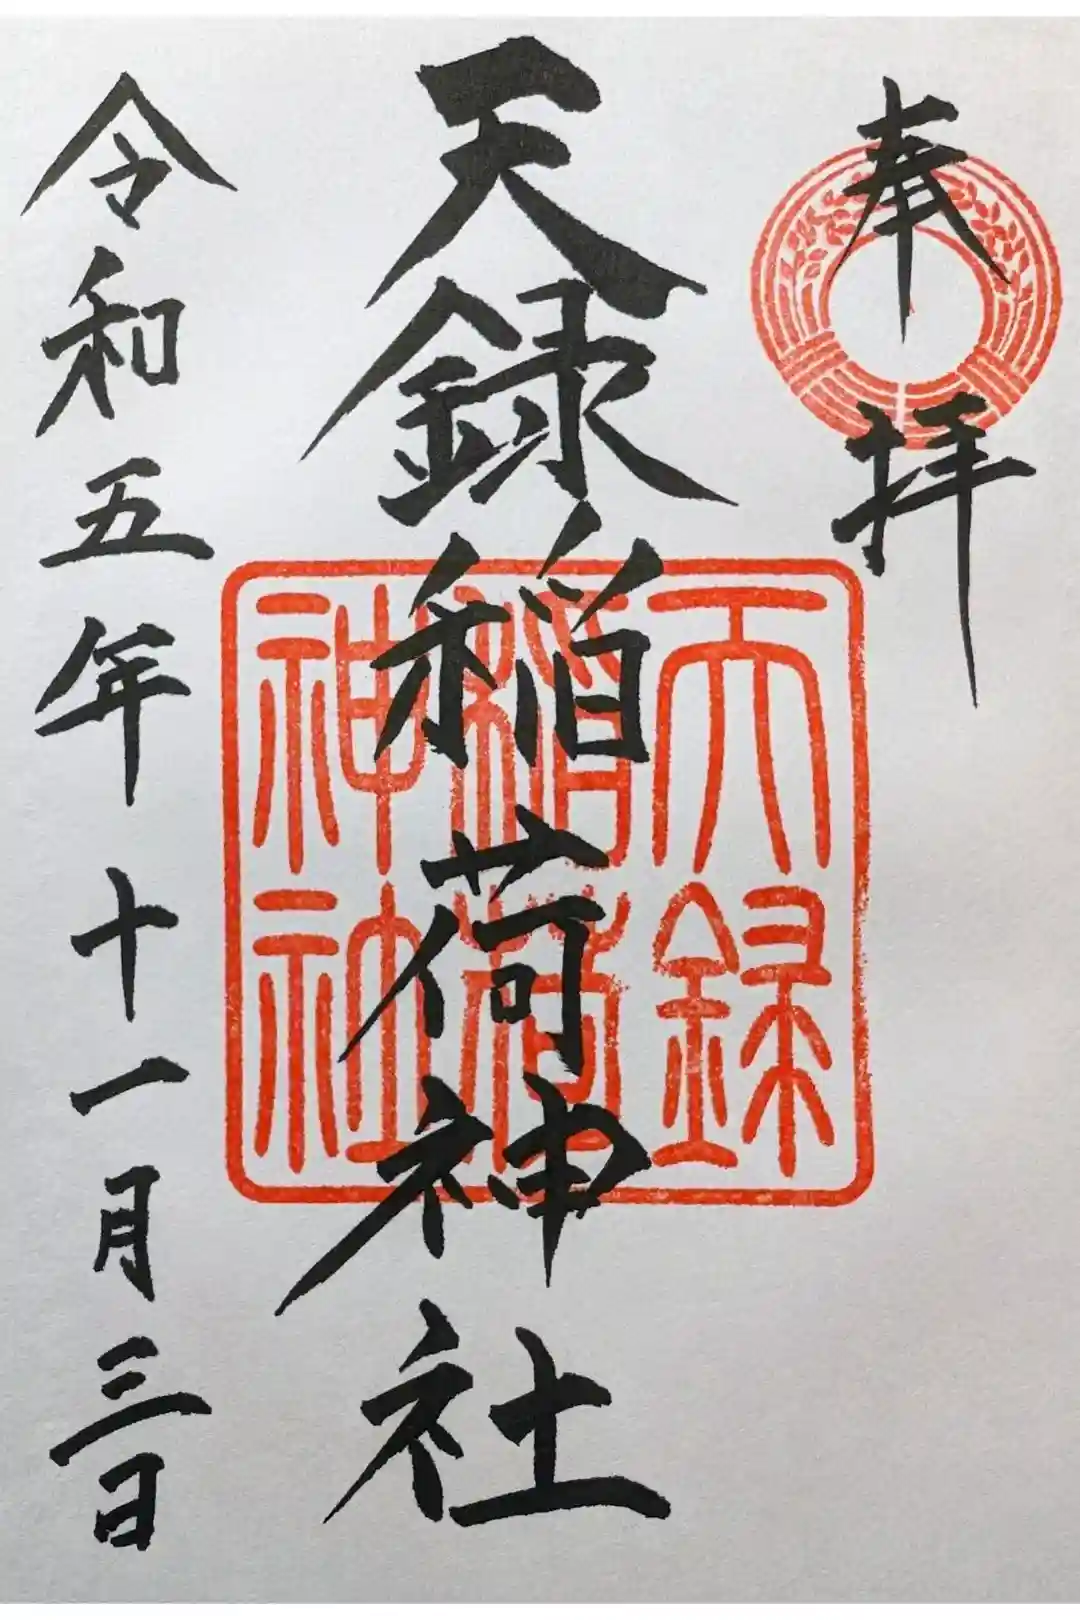 奉拝
天録稲荷神社
令和五年十一月三日
天録
稲荷
神社